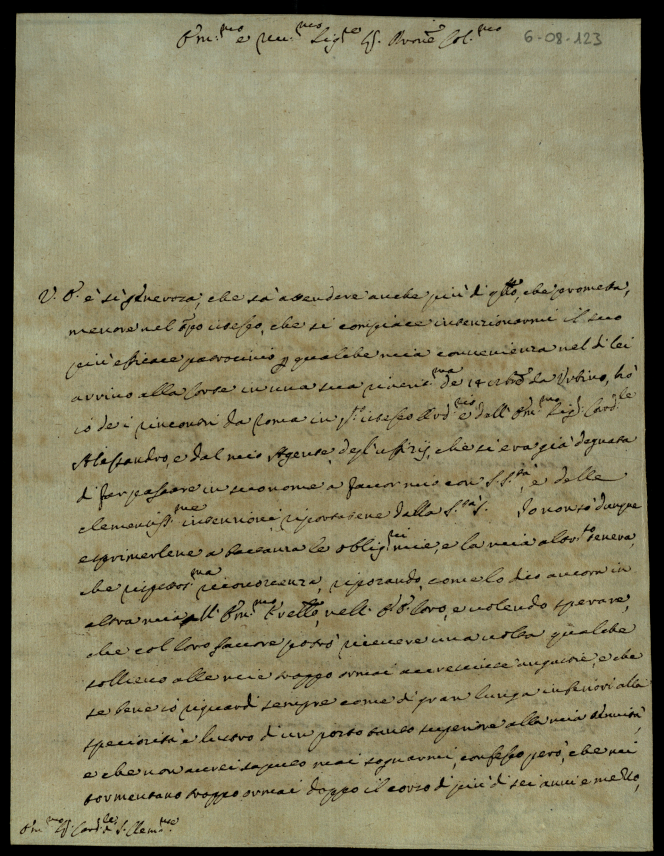 Em.mo e Rev.mo Sig.re Sig. Prone Col.mo
6-08-123
V. E. è sì generosa, che sà attendere anche più di q.llo, che prometta,
mentre nel tpo istesso, che si compiace intenzionarmi il suo
più efficace patrocinio p qualche mia convenienza nel di lei
arrivo alla Corte in una sua riverit.ma de 14 da Urbino, hò
io de i rincontri da Roma in istesso e dell' Em.mo Sig. Card.le
Alessandro, e dal mio Agente degl'uffizij, che si era già degnata
di far passare in suo nome a favor mio con S. S.tà, e delle
clementiss.me intenzioni riportatene dalla S.tà S. Io non sò dunque
esprimerlene a bastanza le oblig.ni mie, e la mia altret.to tenera,
che rispettos.ma riconoscenza, riposando, come lo dico ancora in
altra mia all' Em.mo Fratello, nell' E. E. loro, e volendo sperare,
che col loro favore potrò ricevere una volta qualche
sollievo alle mie troppo ormai accresciute angustie, e che
se bene io riguardi sempre come di gran lunga inferiori alla
speciosità e lustro di un posto tanto superiore alla mia tenuità,
e che non avrei saputo mai sognarmi, confesso però, che mi
tormentano troppo ormai doppo il corso di più di sei anni e mezzo,
Em.mo Sig. Card.le di S. Clem.te